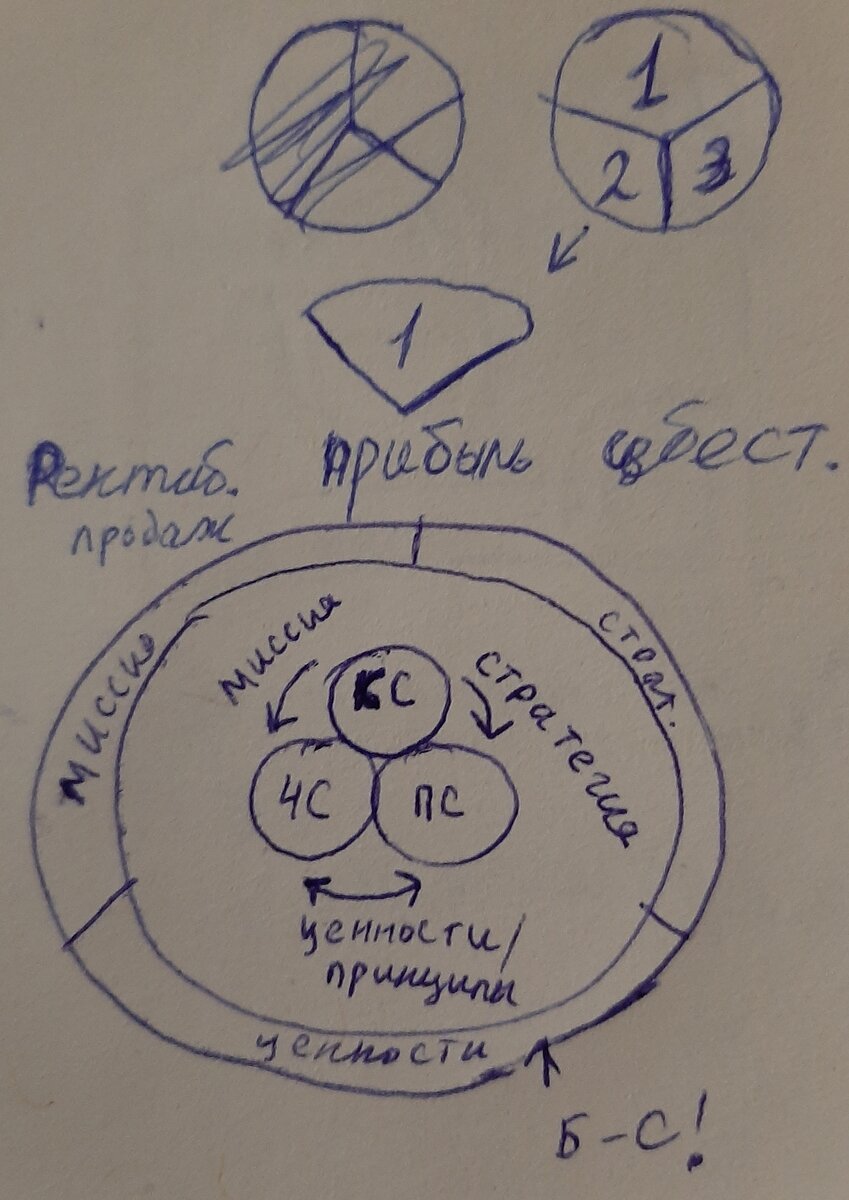 1
2 3
1
Рентаб. прибыль себест.
продаж
миссия
страт.
миссия
стратегия
КС
ЧС ПС
ценности/
принципы
ценности
Б-С!